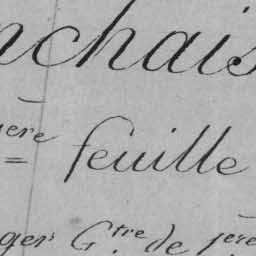 nchais
ère feuille
gers G.tre de 1ère